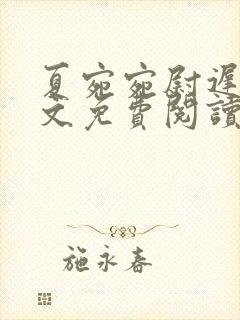 夏宛宛尉遲
文免費閱讀
施永春